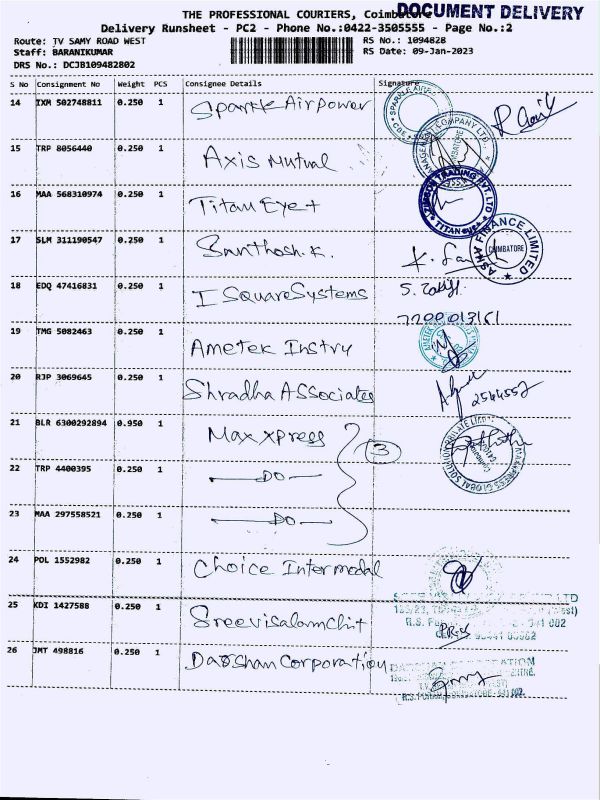 THE PROFESSIONAL COURIERS, Coimbatore
DOCUMENT DELIVERY
Delivery Runsheet - PC2 - Phone No.:0422-3505555 - Page No.:2
Route: TV SAMY ROAD WEST
RS No.: 1094828
Staff: BARANIKUMAR
RS Date: 09-Jan-2023
DRS No.: DCJB109482802
S No Consignment No Weight PCS Consignee Details Signature
14 IXM 502748811 0.250 1 Sparkle Airpower
15 TRP 8056440 0.250 1 Axis Mutual
16 MAA 568310974 0.250 1 Titan Eye +
TITAN eye+
17 SLM 311190547 0.250 1 Santhosh.K.
FINANCE LIMITED
COIMBATORE
18 EDQ 47416831 0.250 1 I Square Systems
7200013161
19 TMG 5082463 0.250 1 Ametek Instru
20 RJP 3069645 0.250 1 Shradha Associates
2544557
21 BLR 6300292894 0.950 1 Max xpress
3
22 TRP 4400395 0.250 1 DO
23 MAA 297558521 0.250 1 DO
24 POL 1552982 0.250 1 Choice Intermodal
25 KDI 1427588 0.250 1 Sreevisalamchit
26 JMT 498816 0.250 1 Darshan Corporation